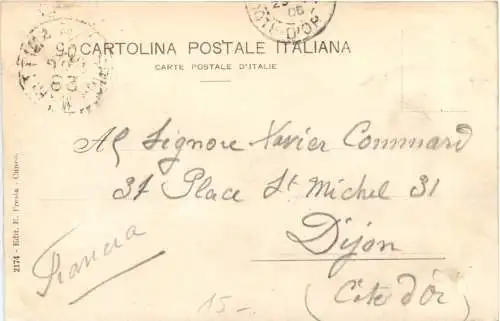 COTE-D'OR
CARTOLINA POSTALE ITALIANA
CARTE POSTALE D'ITALIE
Al Signore Xavier Commard
31 Place St Michel 31
Dijon
(Côte d'Or)
Francia
15-
2174 - Edit. E. Fresia - Cuneo.